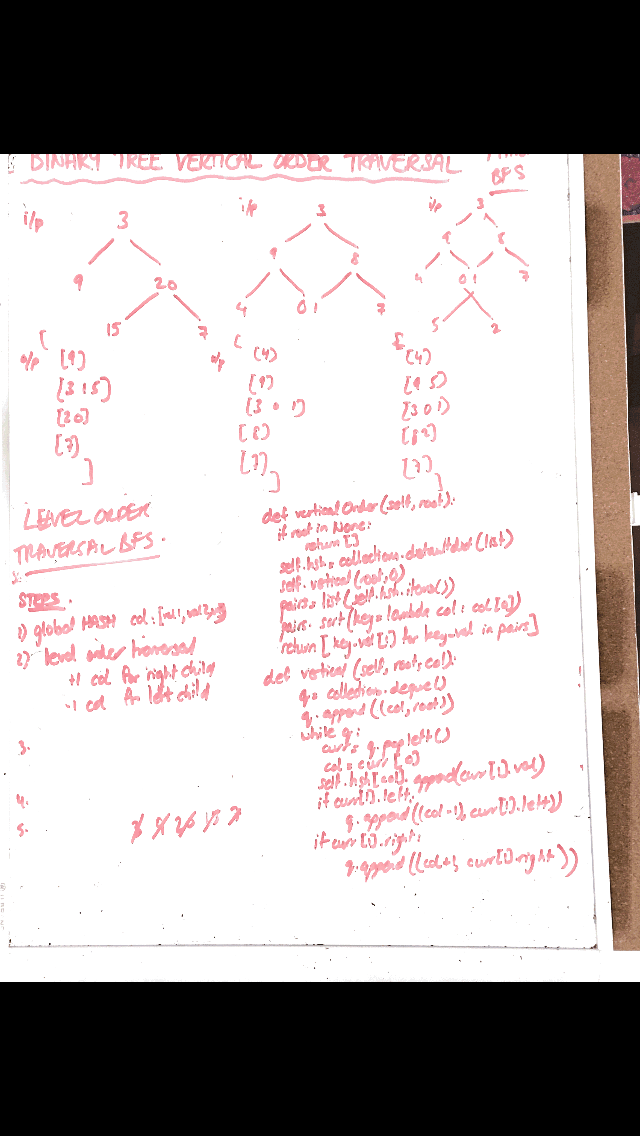 BINARY TREE VERTICAL ORDER TRAVERSAL
BFS
i/p
3
9 20
15 7
o/p [
[9]
[3 15]
[20]
[7]
]
i/p
3
9 8
4 0 1 7
o/p [
[4]
[9]
[3 0 1]
[8]
[7]
]
i/p
3
9 8
4 0 1 7
5 2
[
[4]
[9 5]
[3 0 1]
[8 2]
[7]
]
LEVEL ORDER
TRAVERSAL BFS.
STEPS.
1) global HASH col: [val1, val2,
2) level order traversal
+1 col for right child
-1 col for left child
3.
4.
5.
3 9 20 15 7
def verticalOrder(self, root):
if root in None:
return []
self.hsh = collections.defaultdict(list)
self.vertical(root, 0)
pairs = list(self.hsh.items())
pairs.sort(key=lambda col: col[0])
return [key-val[1] for key-val in pairs]
def vertical(self, root, col):
q = collection.deque()
q.append((col, root))
while q:
curr = q.popleft()
col = curr[0]
self.hsh[col].append(curr[1].val)
if curr[1].left:
q.append((col-1), curr[1].left))
if curr[1].right:
q.append((col+1, curr[1].right))